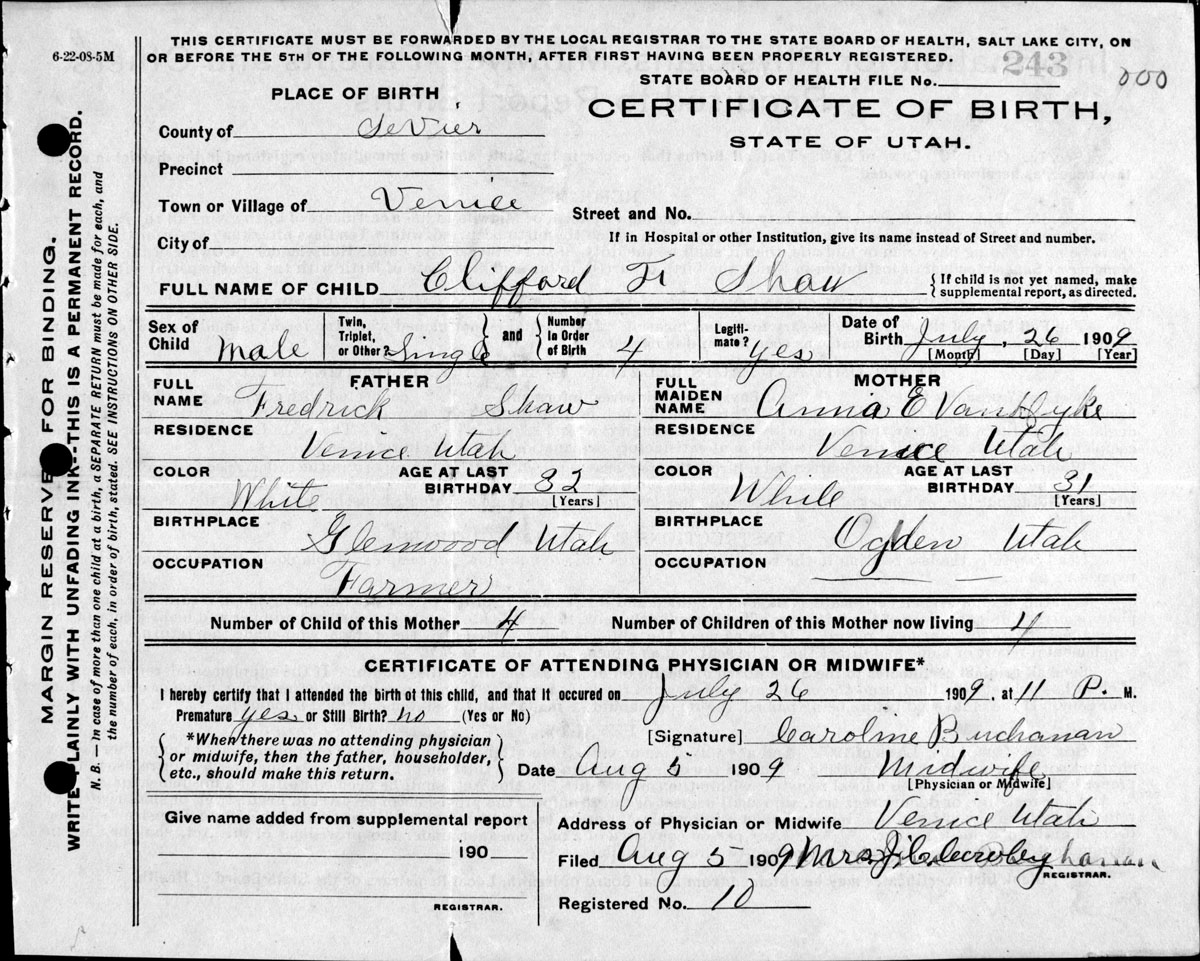 6-22-08-5M
THIS CERTIFICATE MUST BE FORWARDED BY THE LOCAL REGISTRAR TO THE STATE BOARD OF HEALTH, SALT LAKE CITY, ON
OR BEFORE THE 5TH OF THE FOLLOWING MONTH, AFTER FIRST HAVING BEEN PROPERLY REGISTERED.
243
STATE BOARD OF HEALTH FILE No. 000
PLACE OF BIRTH
CERTIFICATE OF BIRTH,
STATE OF UTAH.
County of SeVier
Precinct
Town or Village of Venice
Street and No.
City of
If in Hospital or other Institution, give its name instead of Street and number.
FULL NAME OF CHILD Clifford Fr Shaw { If child is not yet named, make
supplemental report, as directed.
Sex of Child Male Twin, Triplet, or Other? Single and Number in Order of Birth 4 Legitimate? yes Date of Birth July, 26 1909
[Month] [Day] [Year]
FATHER
FULL NAME Fredrick Shaw
RESIDENCE
Venice Utah
COLOR White AGE AT LAST BIRTHDAY 32 [Years]
BIRTHPLACE
Glenwood Utah
OCCUPATION
Farmer
MOTHER
FULL MAIDEN NAME Anna E VanDyke
RESIDENCE
Venice Utah
COLOR White AGE AT LAST BIRTHDAY 31 [Years]
BIRTHPLACE
Ogden Utah
OCCUPATION
Number of Child of this Mother 4 Number of Children of this Mother now living 4
CERTIFICATE OF ATTENDING PHYSICIAN OR MIDWIFE*
I hereby certify that I attended the birth of this child, and that it occured on July 26 1909, at 11 P. M.
Premature yes or Still Birth? no (Yes or No)
{ *When there was no attending physician
or midwife, then the father, householder,
etc., should make this return. }
[Signature] Caroline Buchanan
Date Aug 5 1909 Midwife
[Physician or Midwife]
Give name added from supplemental report
190
REGISTRAR.
Address of Physician or Midwife Venice Utah
Filed Aug 5 1909 Mrs
REGISTRAR.
Registered No. 10
MARGIN RESERVE FOR BINDING.
WRITE PLAINLY WITH UNFADING INK--THIS IS A PERMANENT RECORD.
N. B. — In case of more than one child at a birth, a SEPARATE RETURN must be made for each, and
the number of each, in order of birth, stated. SEE INSTRUCTIONS ON OTHER SIDE.